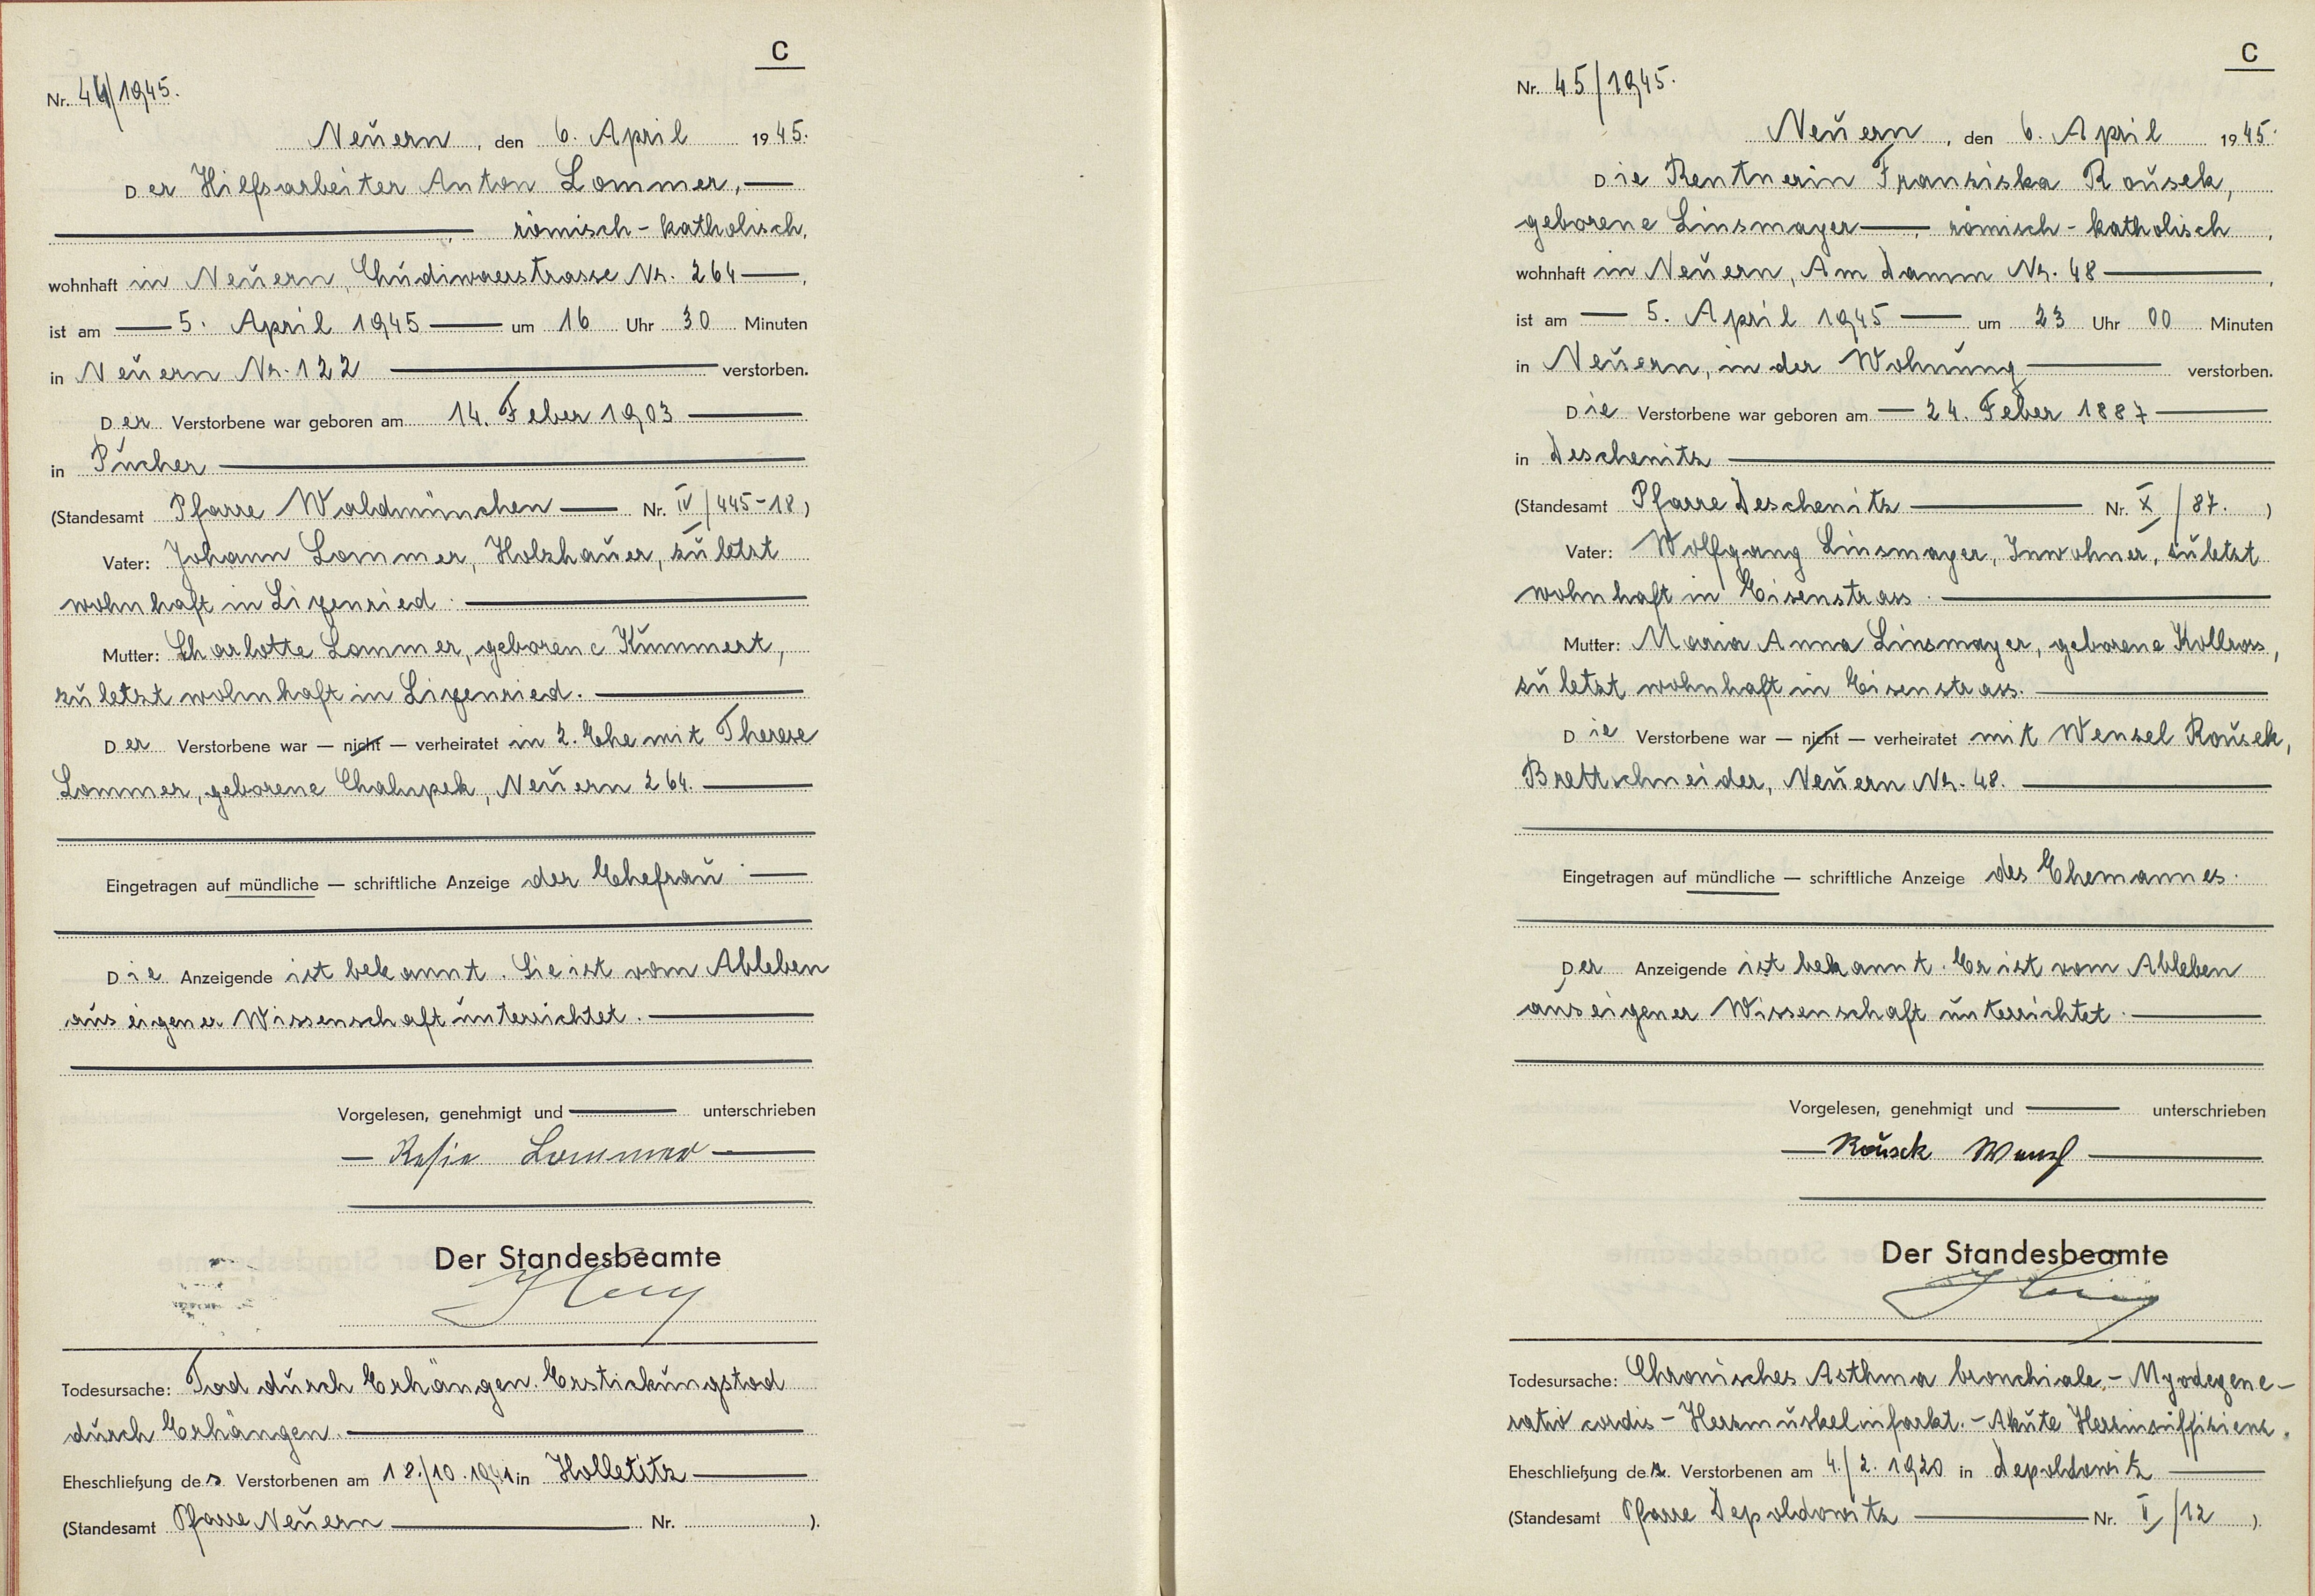 C
Nr. 44/1945.
Neuern, den 6. April 1945.
Der Hilfsarbeiter Anton Lommer, —
—, römisch-katholisch,
wohnhaft in Neuern, Chudiwaerstrasse Nr. 264 —,
ist am — 5. April 1945 — um 16 Uhr 30 Minuten
in Neuern Nr. 122 — verstorben.
Der Verstorbene war geboren am 14. Feber 1903 —
in Pucher —
(Standesamt Pfarre Waldmünchen — Nr. IV/445-18)
Vater: Johann Lommer, Holzhauer, zuletzt
wohnhaft in Lixenried. —
Mutter: Charlotte Lommer, geborene Kummert,
zuletzt wohnhaft in Lixenried. —
Der Verstorbene war — nicht — verheiratet in 2. Ehe mit Therese
Lommer, geborene Chalupek, Neuern 264. —
Eingetragen auf mündliche — schriftliche Anzeige der Ehefrau. —
Die Anzeigende ist bekannt. Sie ist vom Ableben
aus eigener Wissenschaft unterrichtet. —
Vorgelesen, genehmigt und — unterschrieben
— Resie Lommer —
Der Standesbeamte
Todesursache: Tod durch Erhängen. Erstickungstod
durch Erhängen. —
Eheschließung des Verstorbenen am 18./10.1941 in Holletitz —
(Standesamt Pfarre Neuern — Nr. ).
C
Nr. 45/1945.
Neuern, den 6. April 1945.
Die Rentnerin Franziska Rousek,
geborene Linsmayer —, römisch-katholisch,
wohnhaft in Neuern, Am Damm Nr. 48 —,
ist am — 5. April 1945 — um 23 Uhr 00 Minuten
in Neuern, in der Wohnung — verstorben.
Die Verstorbene war geboren am — 24. Feber 1887 —
in Deschenitz —
(Standesamt Pfarre Deschenitz — Nr. X/87.)
Vater: Wolfgang Linsmayer, Inwohner, zuletzt
wohnhaft in Eisenstrass. —
Mutter: Maria Anna Linsmayer, geborene Kollross,
zuletzt wohnhaft in Eisenstrass. —
Die Verstorbene war — nicht — verheiratet mit Wenzel Rousek,
Brettschneider, Neuern Nr. 48. —
Eingetragen auf mündliche — schriftliche Anzeige des Ehemannes.
Der Anzeigende ist bekannt. Er ist vom Ableben
aus eigener Wissenschaft unterrichtet. —
Vorgelesen, genehmigt und — unterschrieben
— Rousek Wenzl —
Der Standesbeamte
Todesursache: Chronisches Asthma bronchiale. - Myodegene-
ratio cordis - Herzmuskelinfarkt. - Akute Herzinsuffizienz.
Eheschließung der Verstorbenen am 4./2. 1920 in Depoldowitz —
(Standesamt Pfarre Depoldowitz — Nr. II/12 ).